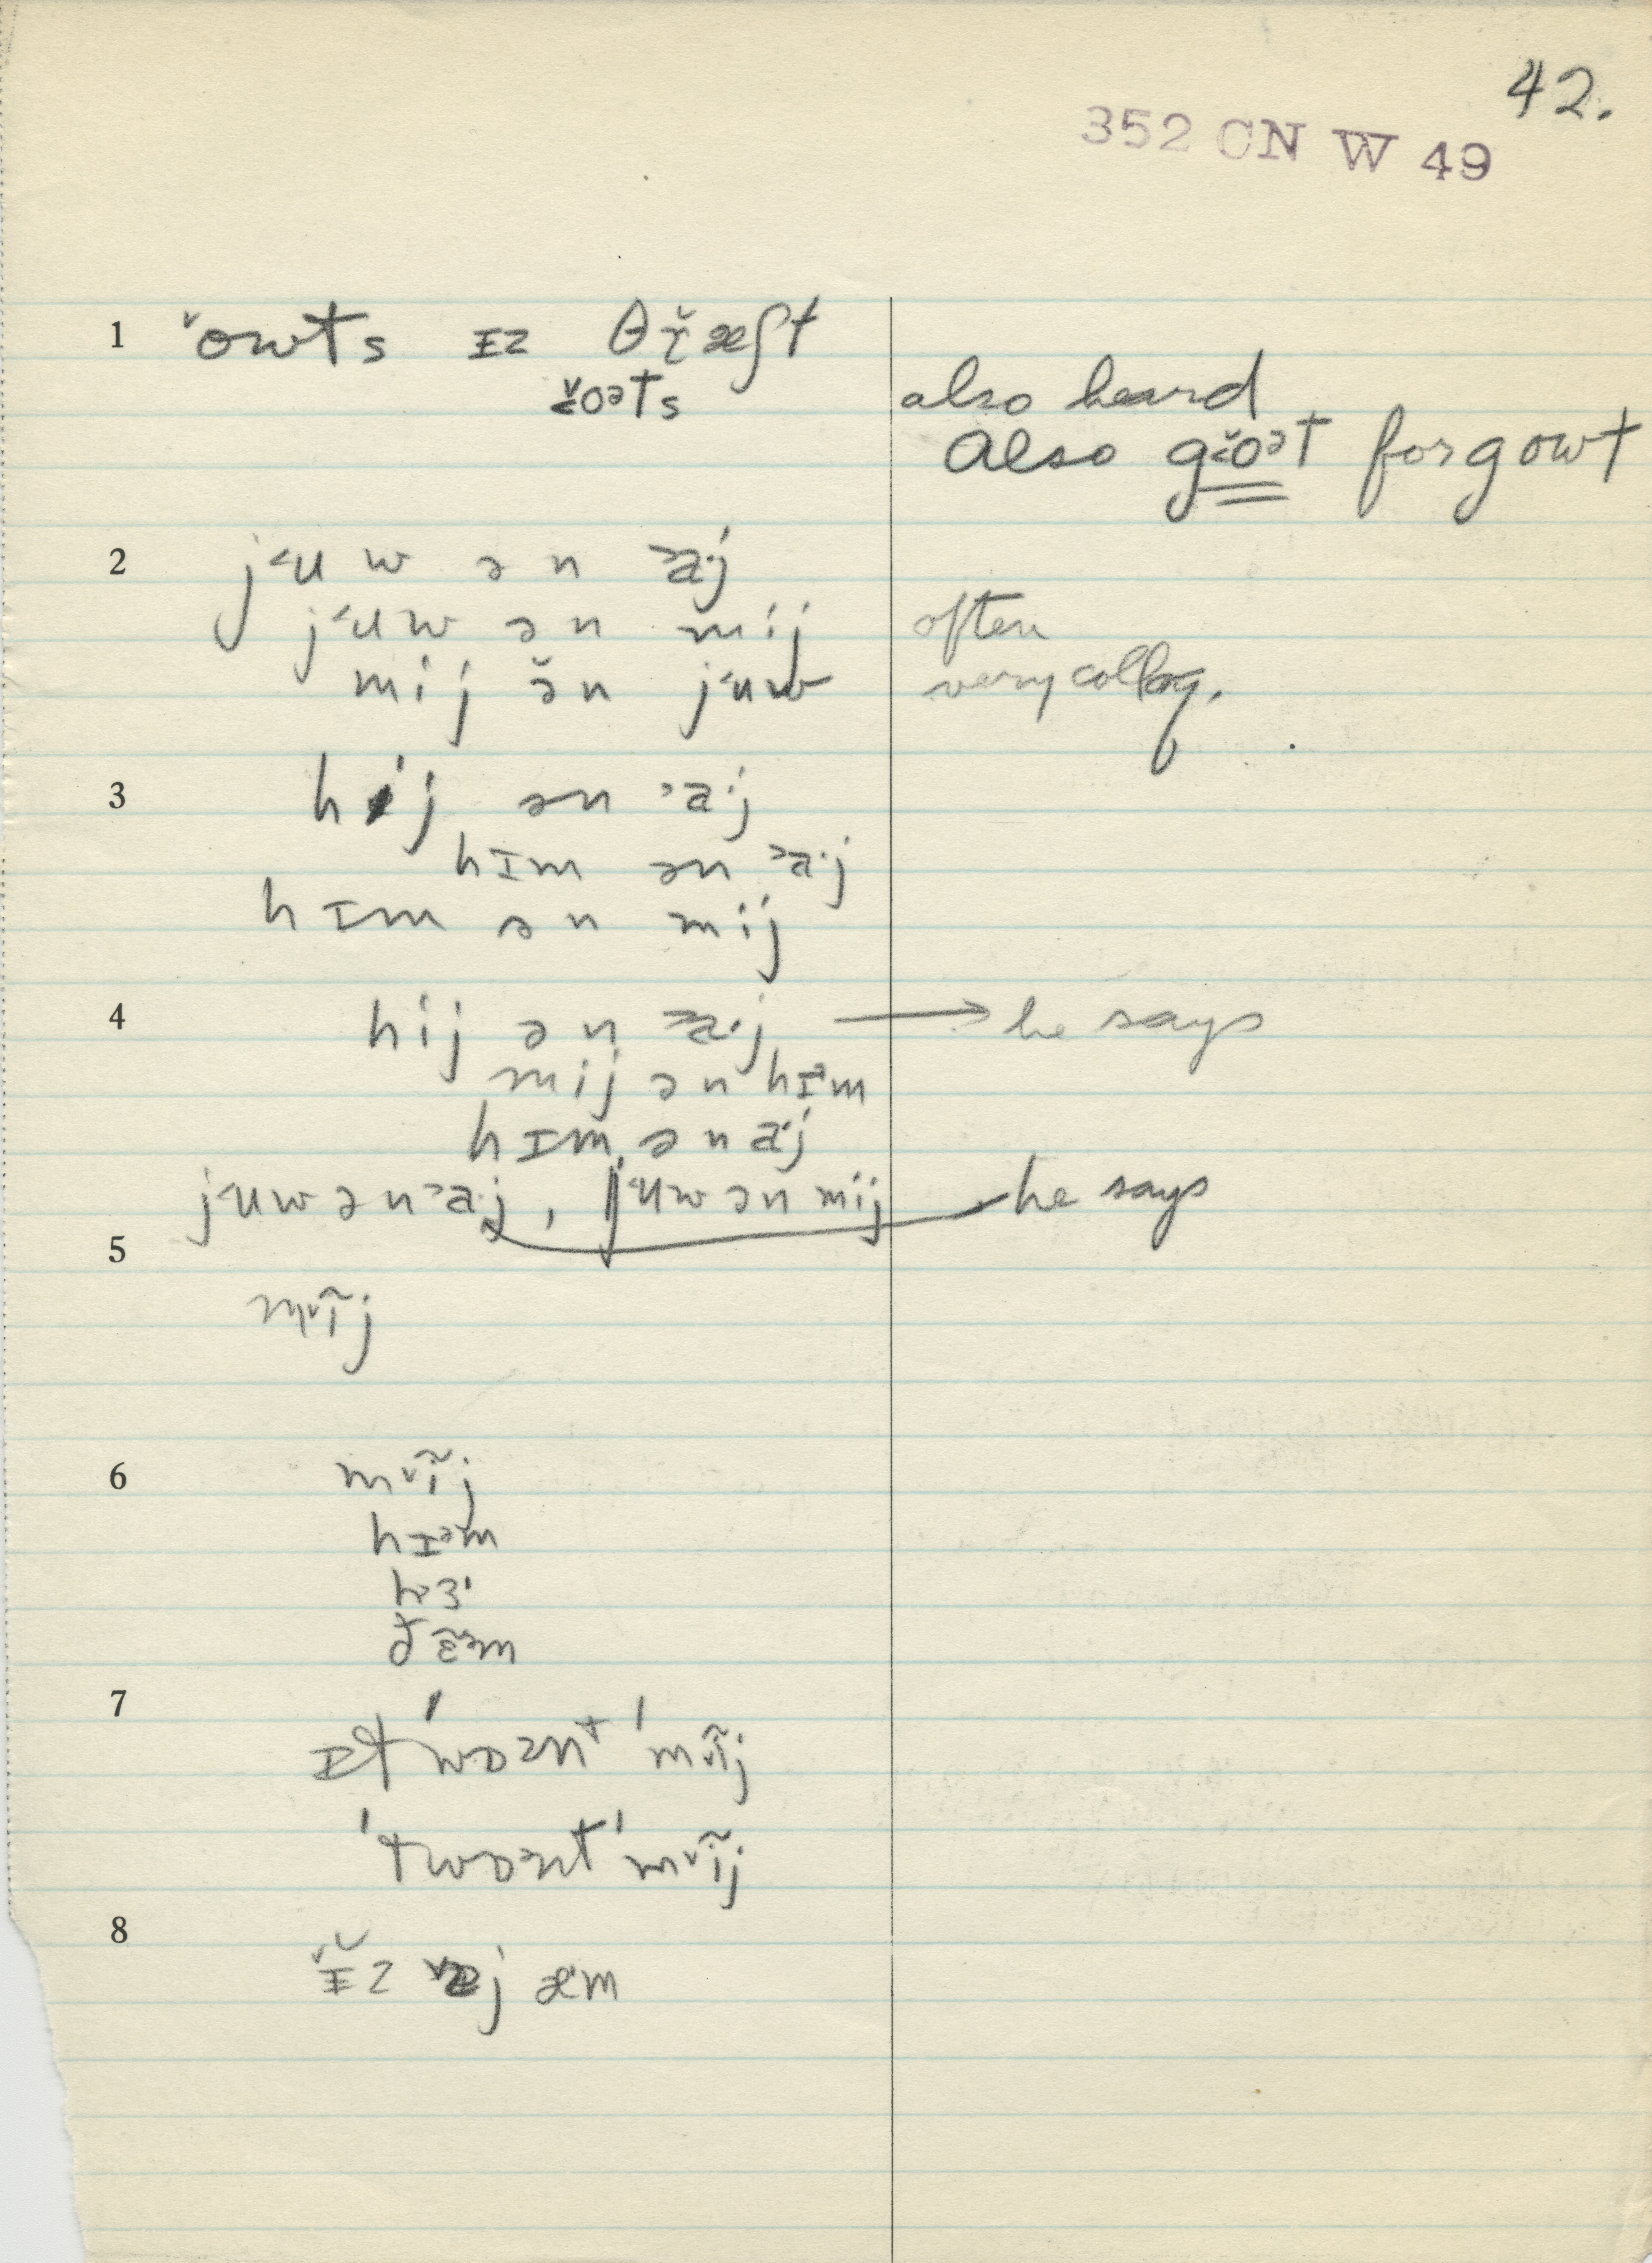 42.
352 CN W 49
1 ˅owts ɪz θɾ̌æʃt
ɔ̌oəts also heard
Also g˂ǒət for gowt
2 j˂uw ən ᵊa·j
j˂uw ən mij often
mij ə̌n j˂uw very colloq.
3 hij ən ᵊa·j
hɪm ən ᵊa·j
hɪm ən mij
4 hij ən a·j → he says
mij ən hɪᵊm
hɪm ən a·j
j˂uw ən ᵊa·j, j˂uw ən mij he says
5
m˅ĩj
6 m˅ĩj
hɪᵊm
hɜ·
ðɛ̃ᵊm
7 ɪt ˈwɒznt ˈm˅ĩj
ˈtwɒznt ˈm˅ĩj
8 ˅ɪ̌z æm